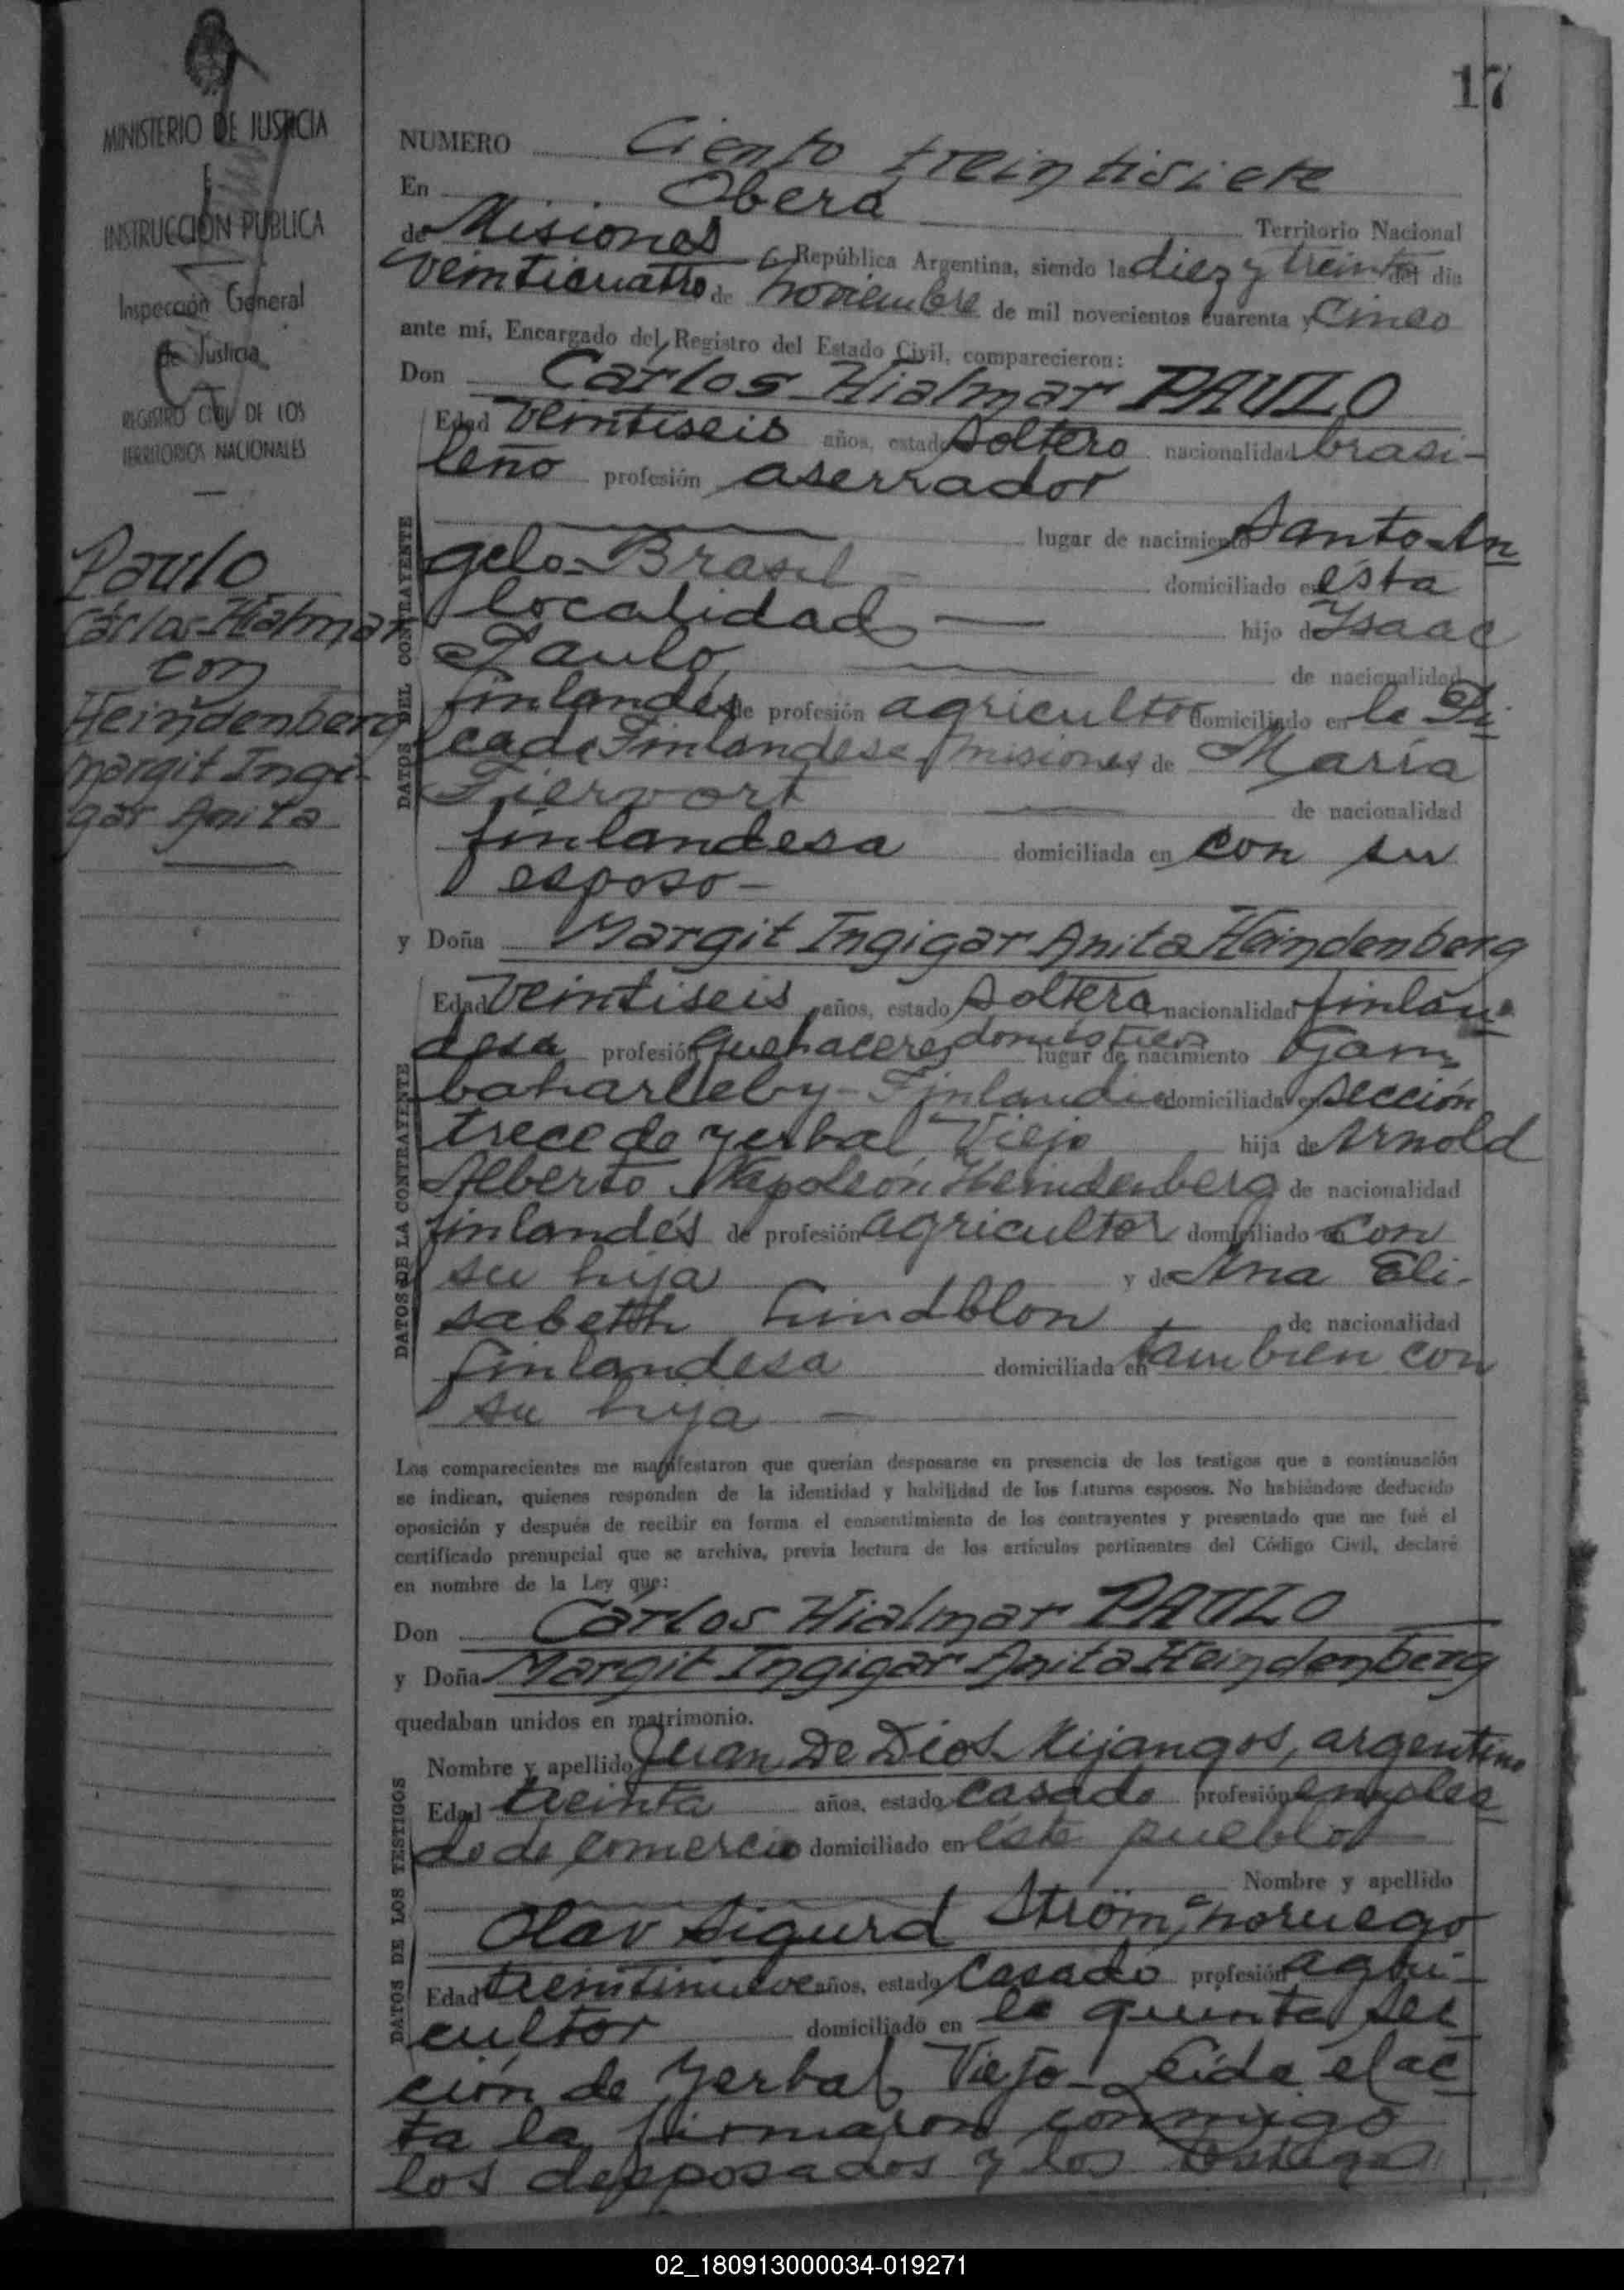 17
MINISTERIO DE JUSTICIA
E
INSTRUCCIÓN PUBLICA
Inspección General
de Justicia
REGISTRO CIVIL DE LOS
TERRITORIOS NACIONALES
Paulo
Cárlos Hialmar
con
Heindenberg
Margit Ingi-
gar Anita
NUMERO Ciento treintisiete
En Oberá Territorio Nacional
de Misiones República Argentina, siendo las diez y treinta del día
veinticuatro de noviembre de mil novecientos cuarenta y cinco
ante mí, Encargado del Registro del Estado Civil, comparecieron:
Don Cárlos Hialmar PAULO
DATOS DEL CONTRAYENTE
Edad veintiseis años, estado soltero nacionalidad brasi-
leño profesión aserrador
lugar de nacimiento Santo An
gelo-Brasil domiciliado en ésta
localidad hijo de Isaac
Paulo de nacionalidad
finlandés de profesión agricultor domiciliado en la Pi
cada Finlandesa Misiones de María
Fiervort de nacionalidad
finlandesa domiciliada en con su
esposo-
y Doña Margit Ingigar Anita Heindenberg
DATOS DE LA CONTRAYENTE
Edad veintiseis años, estado soltera nacionalidad finlan-
desa profesión quehaceres domésticos lugar de nacimiento Gam
baharleby-Finlandia domiciliada en sección
trece de yerbal Viejo hija de Arnold
Alberto Napoleón Heindenberg de nacionalidad
finlandés de profesión agricultor domiciliado en con
su hija y de Ana Eli-
sabeth Lindblon de nacionalidad
finlandesa domiciliada en tambien con
su hija -
Los comparecientes me manifestaron que querían desposarse en presencia de los testigos que a continuación
se indican, quienes responden de la identidad y habilidad de los futuros esposos. No habiéndose deducido
oposición y después de recibir en forma el consentimiento de los contrayentes y presentado que me fué el
certificado prenupcial que se archiva, previa lectura de los artículos pertinentes del Código Civil, declaré
en nombre de la Ley que:
Don Cárlos Hialmar PAULO
y Doña Margit Ingigar Anita Heindenberg
quedaban unidos en matrimonio.
DATOS DE LOS TESTIGOS
Nombre y apellido Juan De Dios Mijangos, argentino
Edad treinta años, estado casado profesión emplea
do de comercio domiciliado en éste pueblo
Nombre y apellido
Olav Sigurd Ström, noruego
Edad treintinueve años, estado casado profesión agri-
cultor domiciliado en la quinta sec
ción de Yerbal Viejo - Leida el ac
ta la firmaron conmigo
los desposados y los testigos
02_180913000034-019271